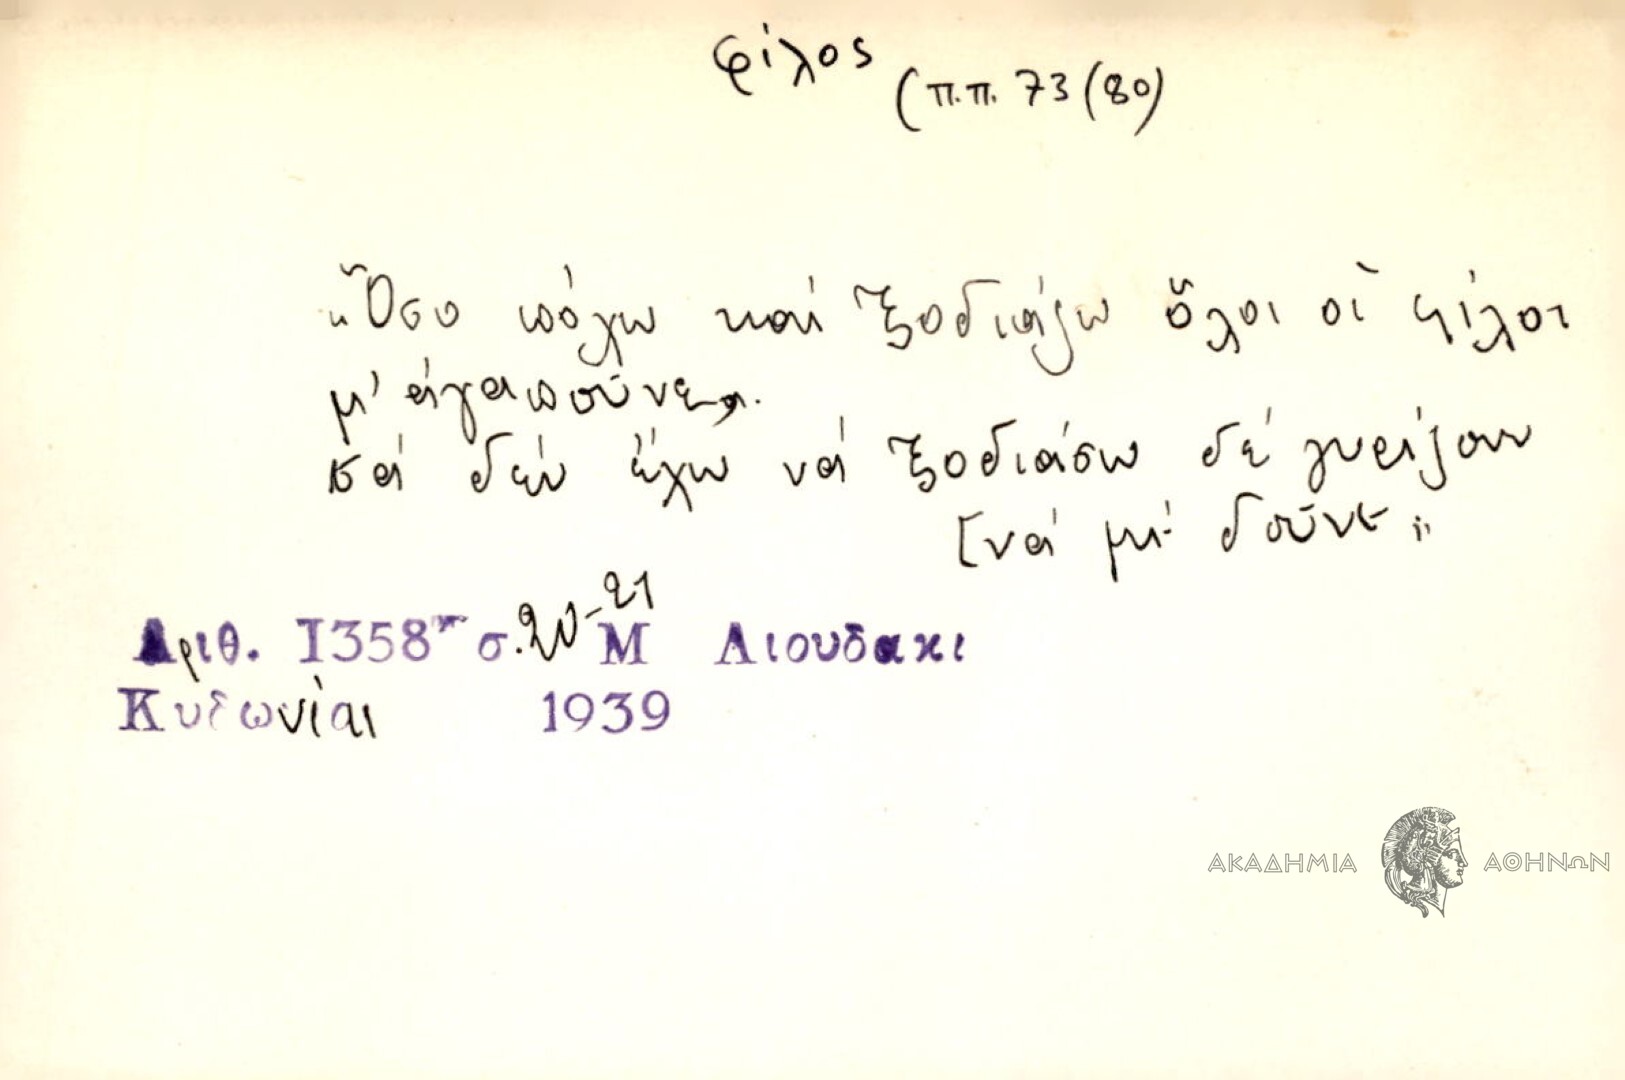 φίλος
(π.π. 73 (80)
"Ὅσο πόχω καὶ ξοδιάζω ὅλοι οἱ φίλοι
μ' ἀγαποῦνε,
σὰ δὲν ἔχω νὰ ξοδιάσω δὲ γυρίζουν
[νὰ μὲ δοῦνε;"
Αριθ. 1358 σ. 20-21 Μ Λιουδακι
Κυδωνίαι 1939
ΑΚΑΔΗΜΙΑ ΑΘΗΝΩΝ